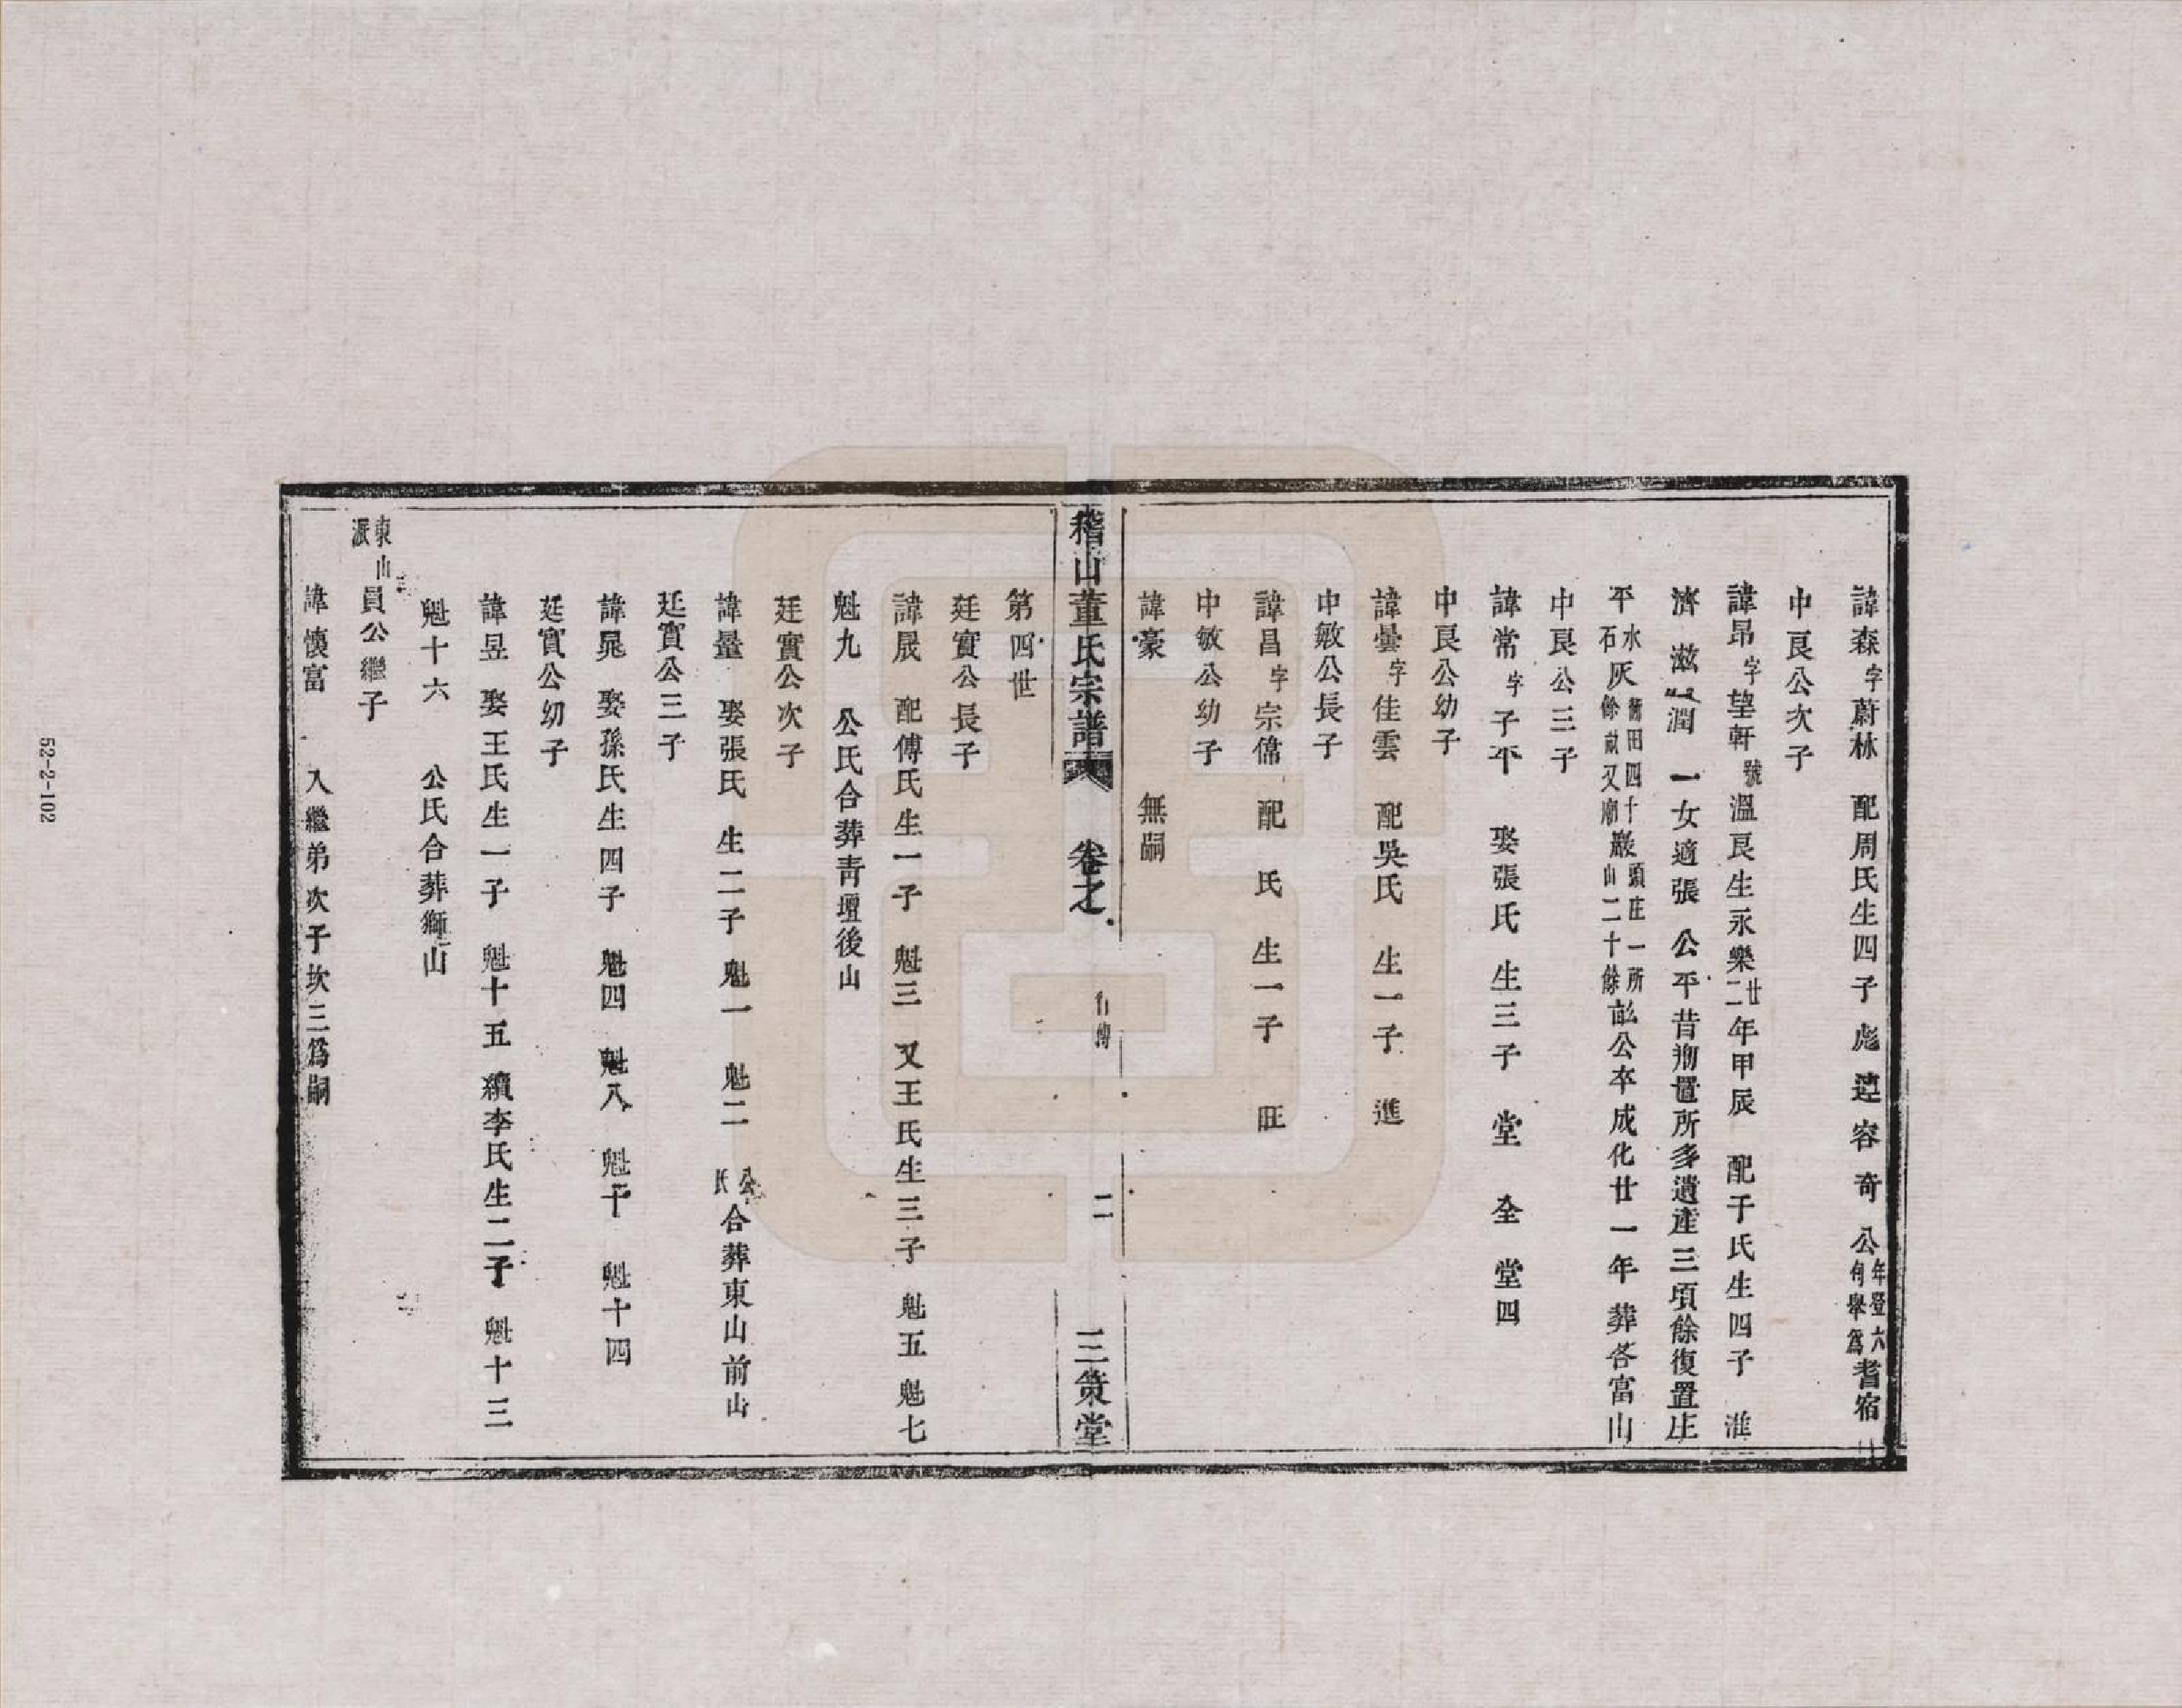 諱森字蔚林 配周氏生四子 彪 達 容 奇 公年登六旬舉爲耆宿
中良公次子
諱昂字望軒號溫良生永樂廿二年甲辰 配于氏生四子 淮
濟 滋 潤 一女適張 公平昔剏置所多遺產三頃餘復置庄
平水石灰舊田四十餘畝又廟巖頭庄一所山二十餘畝公卒成化廿一年 葬各富山
中良公三子
諱常字子平 娶張氏 生三子 堂 全 堂四
中良公幼子
諱曇字佳雲 配吳氏 生一子 進
中敏公長子
諱昌字宗儒 配 氏 生一子 旺
中敏公幼子
諱豪 無嗣
稽山董氏宗譜 卷之 行傳 二 三策堂
第四世
廷實公長子
諱晟 配傅氏生一子 魁三 又王氏生三子 魁五 魁七
魁九 公氏合葬靑壇後山
廷實公次子
諱量 娶張氏 生二子 魁一 魁二 公氏合葬東山前山
廷實公三子
諱晁 娶孫氏生四子 魁四 魁八 魁十 魁十四
廷實公幼子
諱昱 娶王氏生一子 魁十五 續李氏生二子 魁十三
魁十六 公氏合葬獅山
東山派 員公繼子
諱懷富 入繼弟次子坎三爲嗣
52-2-102